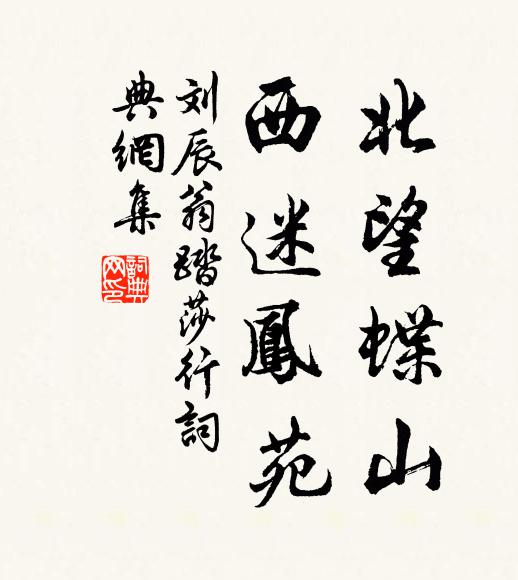 北望蝶山
西迷鳳苑
刘辰翁踏莎行詞
典網集
詞典
网印